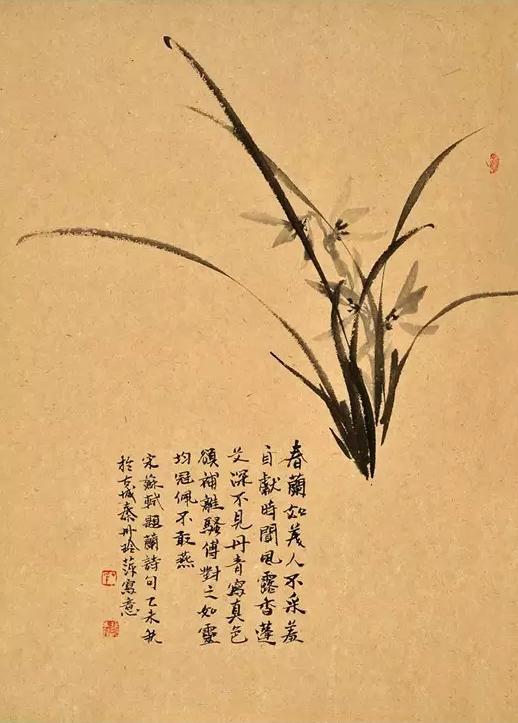 春蘭如美人不采羞
自獻時聞風露香蓬
艾深不見丹青寫真色
欲補離騷傳對之如靈
均冠佩不敢燕
宋蘇軾題蘭詩句乙未秋
於京城秦丹玲萍寫意